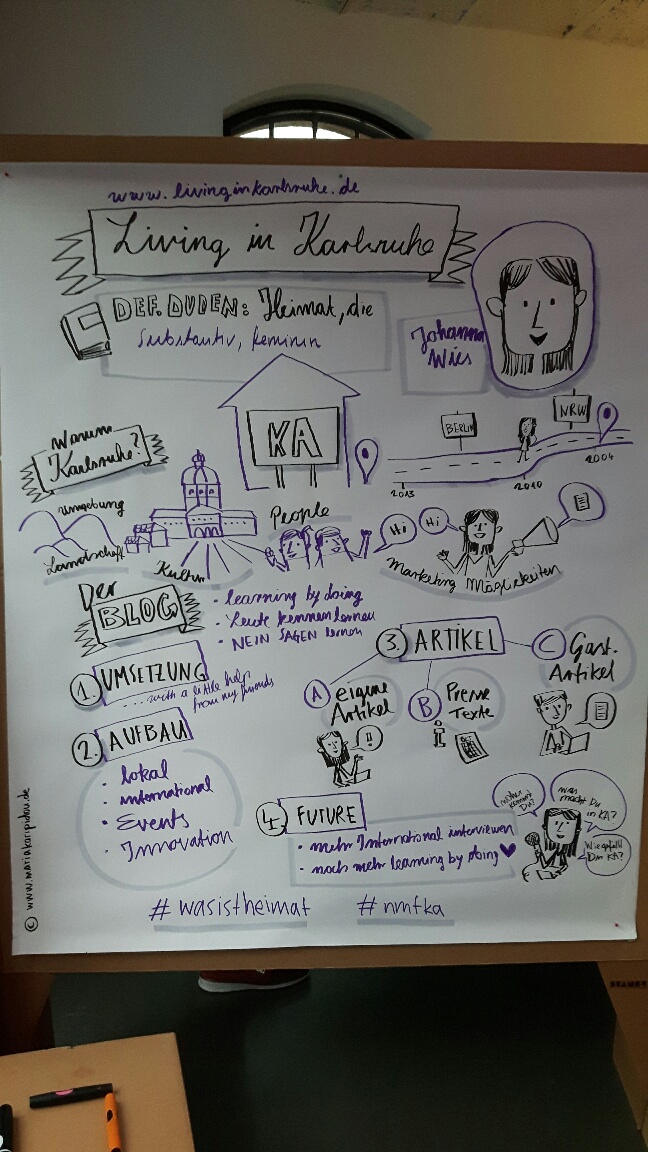 www.livinginkarlsruhe.de
Living in Karlsruhe
DEF. DUDEN: Heimat, die
Substantiv, feminin
Johanna
Wies
Warum
Karlsruhe?
KA
BERLIN
NRW
2013
2010
2004
Umgebung
Landschaft
Kultur
People
Hi
Hi
Marketing Möglichkeiten
Der
BLOG
• learning by doing
• Leute kennenlernen
• NEIN SAGEN lernen
1. UMSETZUNG
... with a little help
from my friends
2. AUFBAU
• lokal
• international
• Events
• Innovation
3. ARTIKEL
A eigene
Artikel
!!
B Presse
Texte
i
C Gast-
Artikel
4. FUTURE
• mehr International interviewen
• noch mehr learning by doing ♥
woher
kommst
Du?
was
machst Du
in KA?
Wie gefällt
Dir KA?
#wasistheimat #nmfka
© www.mariakaripidou.de